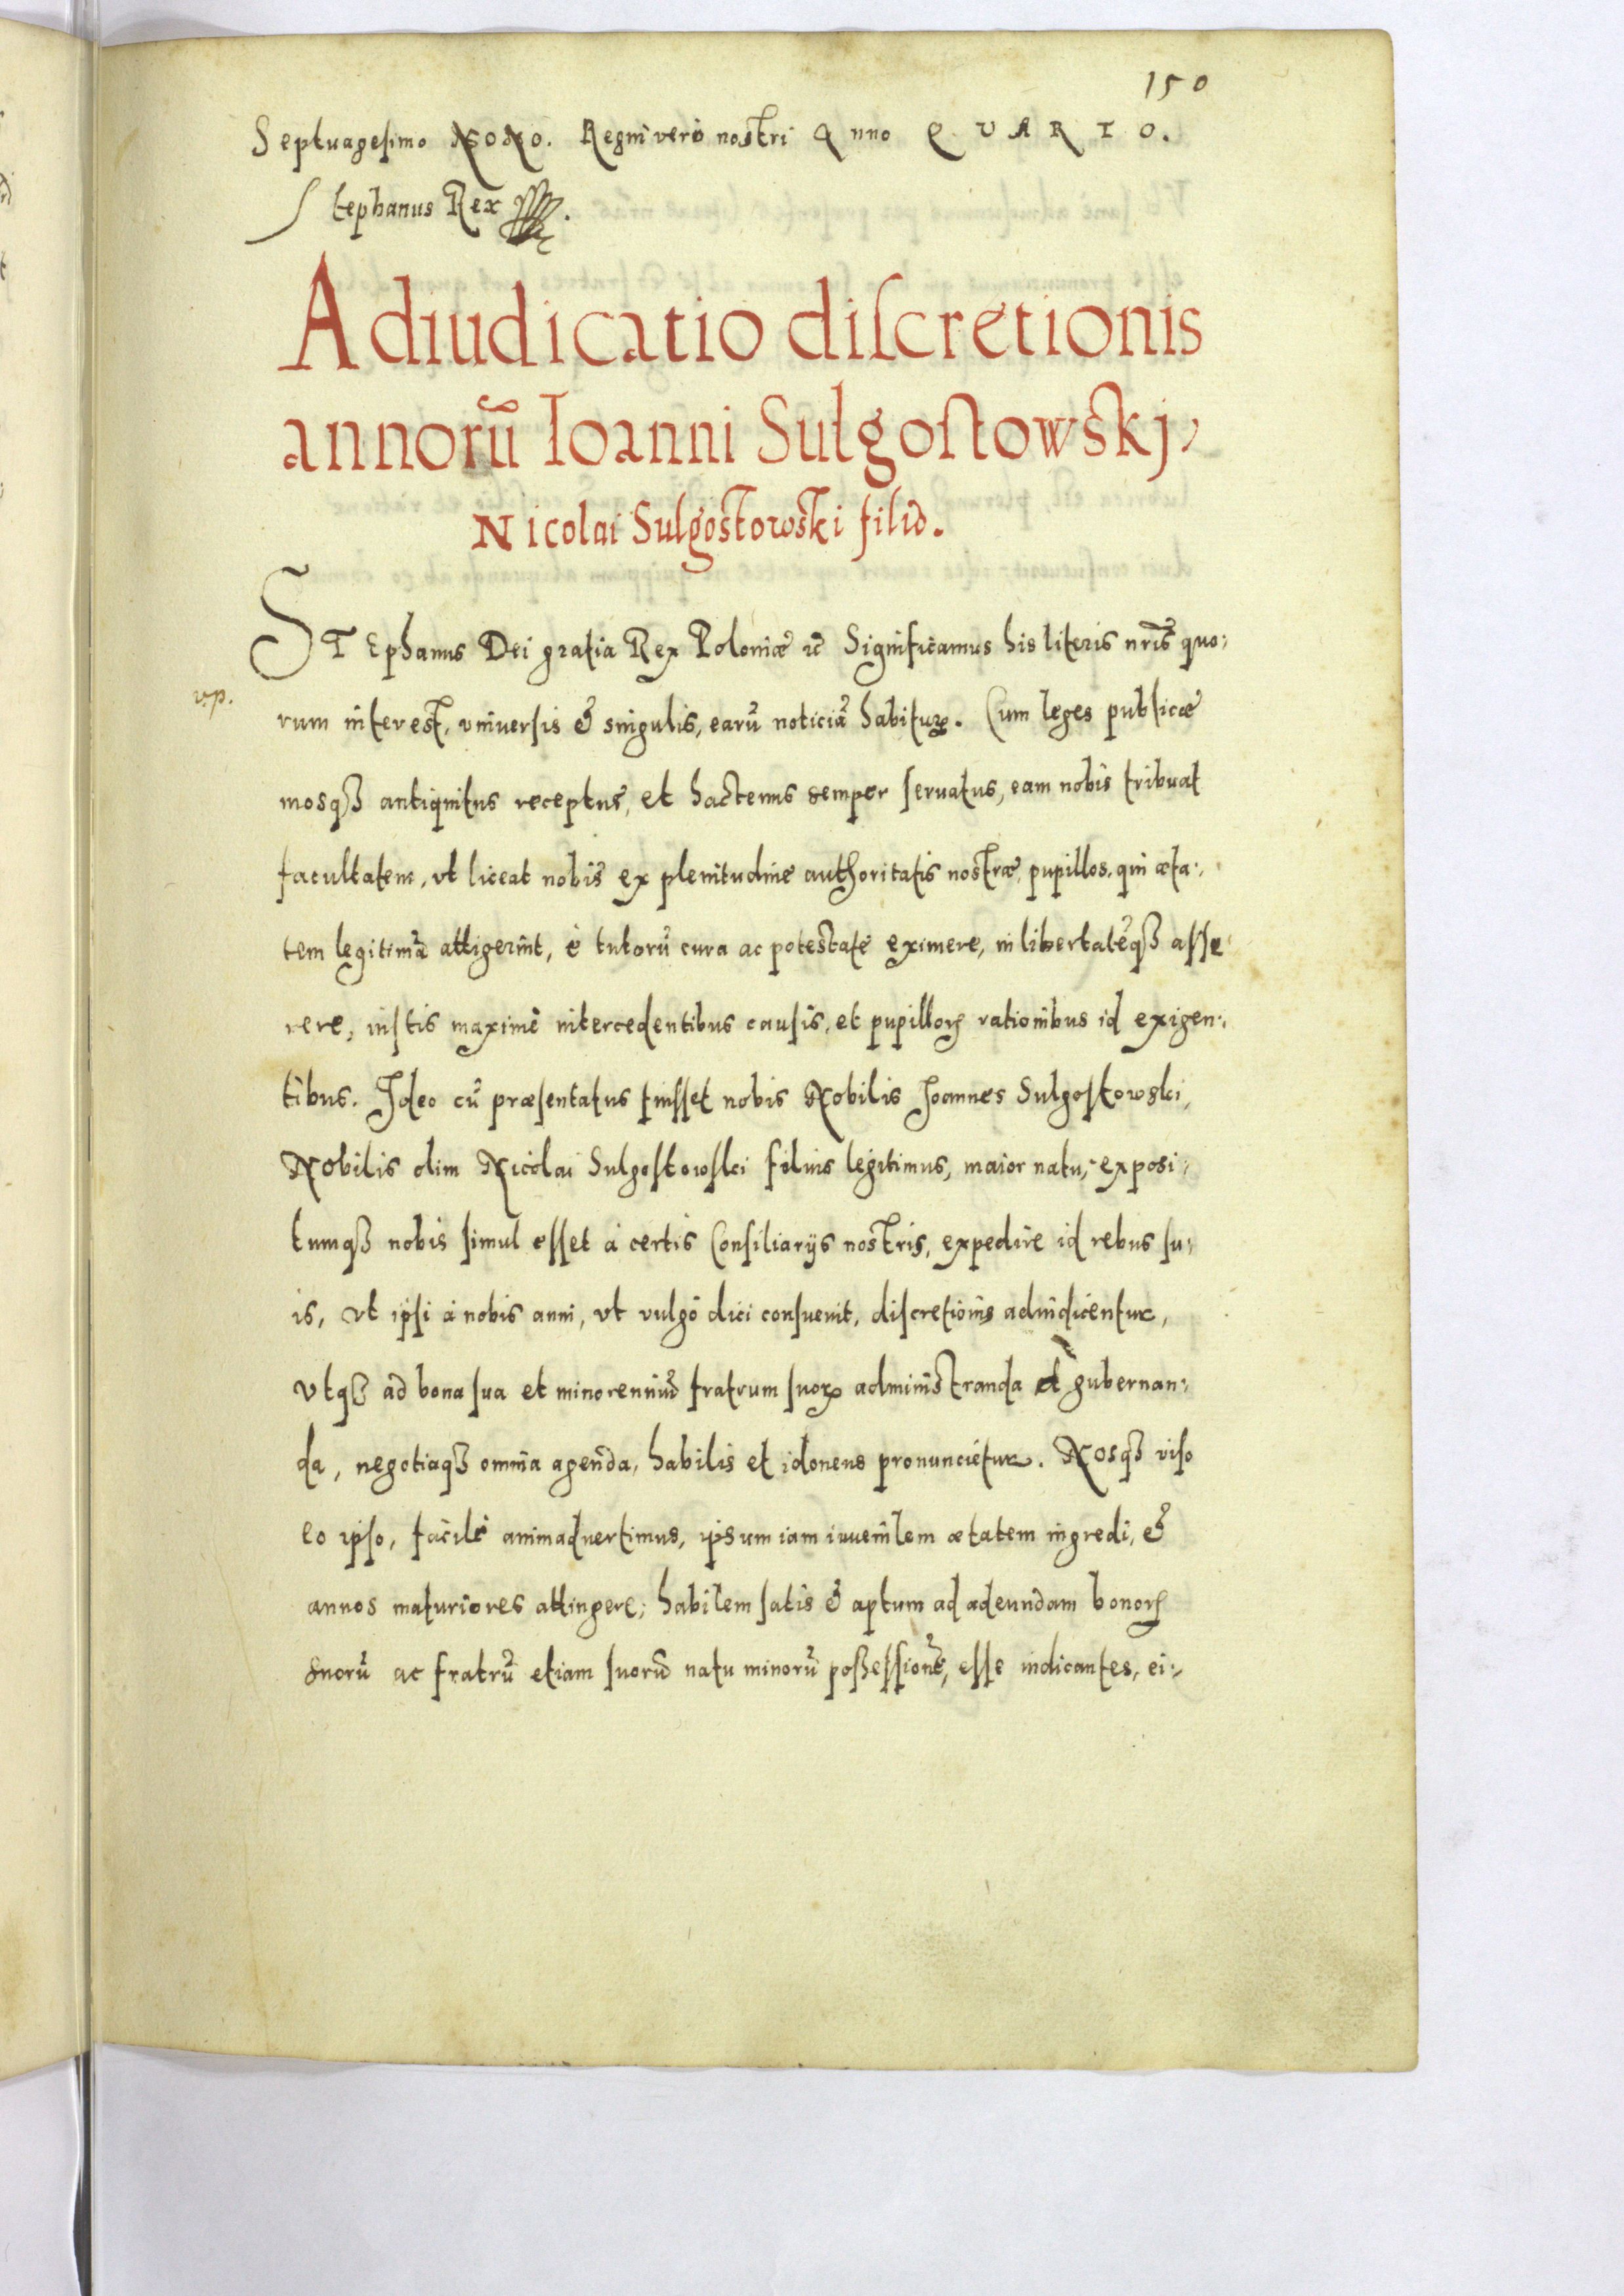 150
Septuagesimo NONO. Regni verò nostri Anno QUARTO.
Stephanus Rex
Adiudicatio discretionis
annorũ Ioanni Sulgostowskj,
Nicolai Sulgostowski filio.
STEphanus Dei gratia Rex Poloniæ &c̃ Significamus his literis nr̃is quo:
v.p.
rum interest, vniuersis & singulis, earũ noticiã habituꝝ. Cum leges publicæ
mosqꝫ antiquitus receptus, et hactenus semper seruatus, eam nobis tribuat
facultatem, vt liceat nobis ex plenitudine authoritatis nostræ, pupillos, qui æta:
tem legitimã attigerint, è tutorũ cura ac potestate eximere, in libertatẽqꝫ asse
rere, iustis maximè intercedentibus causis, et pupilloꝝ rationibus id exigen:
tibus. Ideo cũ præsentatus fuisset nobis Nobilis Joannes Sulgostowski,
Nobilis olim Nicolai Sulgostowski filius legitimus, maior natu, exposi:
tumqꝫ nobis simul esset à certis Consiliarijs nostris, expedire id rebus su:
is, vt ipsi à nobis anni, vt vulgò dici consueuit, discretionis adiudicentur,
vtqꝫ ad bona sua et minorenniũ fratrum suoꝝ administranda et gubernan:
da, negotiaqꝫ omnia agenda, habilis et idoneus pronuncietur. Nosqꝫ viso
eo ipso, facilè animaduertimus, ipsum iam iuuenilem ætatem ingredi, &
annos maturiores attingere; habilem satis & aptum ad adeundam bonoꝝ
suorũ ac fratrũ etiam suorũ natu minorũ poßessionẽ, esse iudicantes, ei: